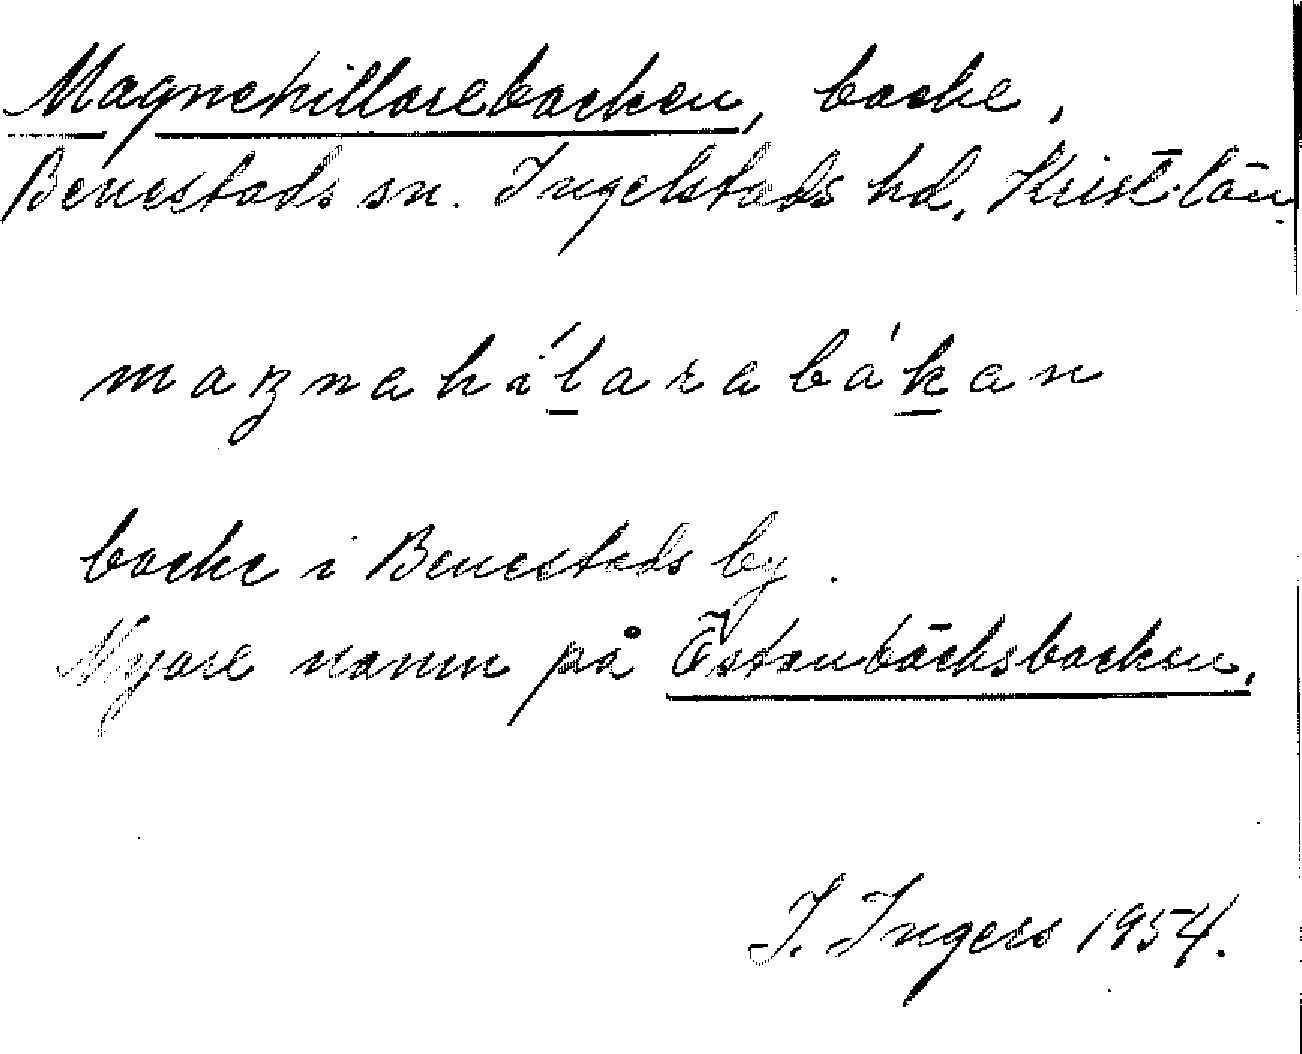 Magnehillarebacken, backe,
Benestads sn. Ingelstads hd. Krist. län.
maŋnahílarabákan
backe i Benestads by.
Nyare namn på Östenbäcksbacken.
I. Ingers 1954.